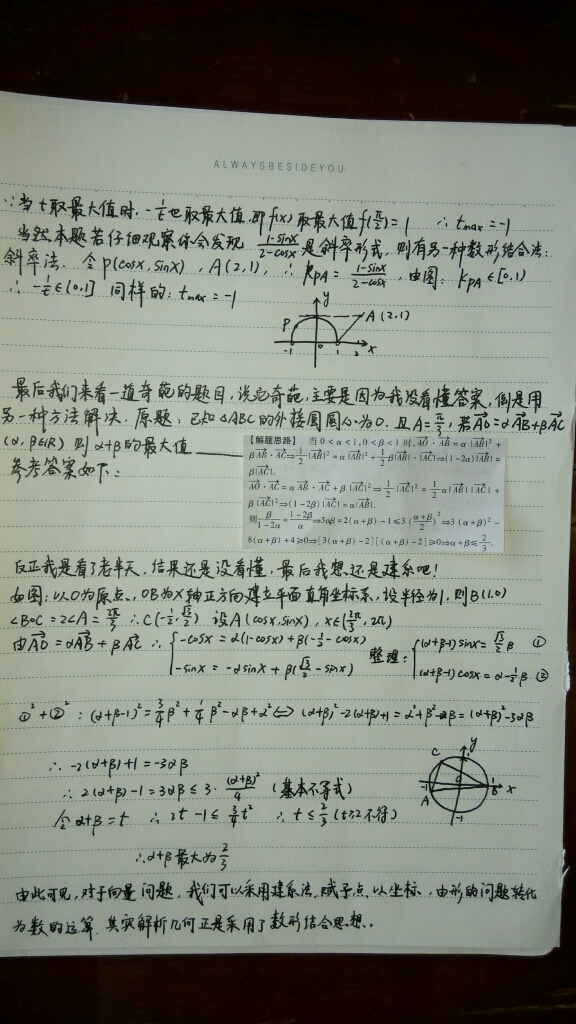 ALWAYSBESIDEYOU
∵当t取最大值时, -1/t也取最大值,即f(x)取最大值f(π/2)=1 ∴ tmax=-1
当然本题若仔细观察你会发现 (1-sinx)/(2-cosx) 是斜率形式, 则有另一种数形结合法:
斜率法. 令P(cosx, sinx), A(2,1), ∴ kPA = (1-sinx)/(2-cosx), 由图: kPA∈[0,1)
∴ -1/t∈(0,1] 同样的: tmax=-1
y
P
A(2,1)
-1 0 1 2 x
最后我们来看一道奇葩的题目, 说它奇葩, 主要是因为我没看懂答案, 倒是用
另一种方法解决. 原题: 已知△ABC的外接圆圆心为O. 且A=π/3, 若AO→=αAB→+βAC→
(α,β∈R) 则α+β的最大值
参考答案如下:
【解题思路】 当0<α<1,0<β<1时,AO→·AB→=α|AB→|²+
βAB→·AC→⇒1/2|AB→|²=α|AB→|²+1/2β|AB→|·|AC→|⇒(1-2α)|AB→|=
β|AC→|.
AO→·AC→=αAB→·AC→+β|AC→|²⇒1/2|AC→|²=1/2α|AB→||AC→|+
β|AC→|²⇒(1-2β)|AC→|=α|AB→|.
则β/(1-2α)=(1-2β)/α⇒3αβ=2(α+β)-1≤3((α+β)/2)²⇒3(α+β)²-
8(α+β)+4≥0⇒[3(α+β)-2][(α+β)-2]≥0⇒α+β≤2/3.
反正我是看了老半天, 结果还是没看懂, 最后我想还是建系吧!
如图: 以O为原点, OB为X轴正方向建立平面直角坐标系, 设半径为1, 则B(1,0)
∠BOC=2∠A=2π/3 ∴C(-1/2,√3/2) 设A(cosx,sinx), x∈(2π/3,2π)
由AO→=αAB→+βAC→ ∴ { -cosx=α(1-cosx)+β(-1/2-cosx) 整理: { (α+β-1)sinx=√3/2β ①
-sinx=-αsinx+β(√3/2-sinx) (α+β-1)cosx=α-1/2β ②
①²+②²: (α+β-1)²=3/4β²+1/4β²-αβ+α²⇔(α+β)²-2(α+β)+1=α²+β²-αβ=(α+β)²-3αβ
∴ -2(α+β)+1=-3αβ
∴ 2(α+β)-1=3αβ≤3·(α+β)²/4 (基本不等式)
令α+β=t ∴ 2t-1≤3/4t² ∴ t≤2/3 (t≥2不符)
y
C
1
-1 O 1 x
A B
-1
∴α+β最大为2/3
由此可见, 对于向量问题, 我们可以采用建系法, 赋予点以坐标, 由形的问题转化
为数的运算. 其实解析几何正是采用了数形结合思想.